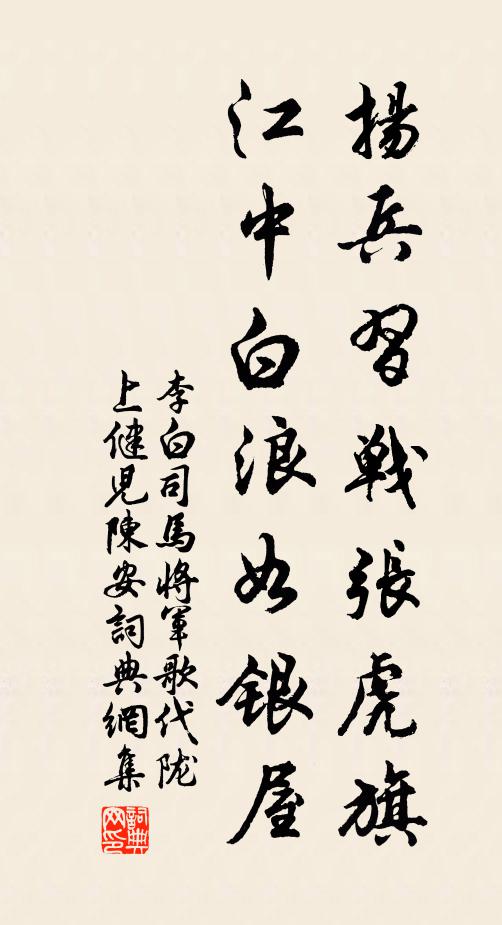 揚兵習戰張虎旗
江中白浪如銀屋
李白司馬將軍歌代陇
上健兒陳安詞典網集
詞典
网印